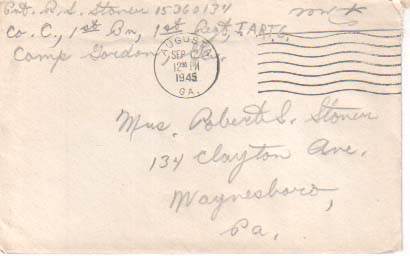 Pvt. R. S. Stoner 15360134
Co. C, 1st Bn, 1st Regt, IARTC.
Camp Gordon, Ga.
AUGUSTA
SEP
12 M
1945
GA.
Mrs. Robert S. Stoner
134 Clayton Ave.
Waynesboro,
Pa.